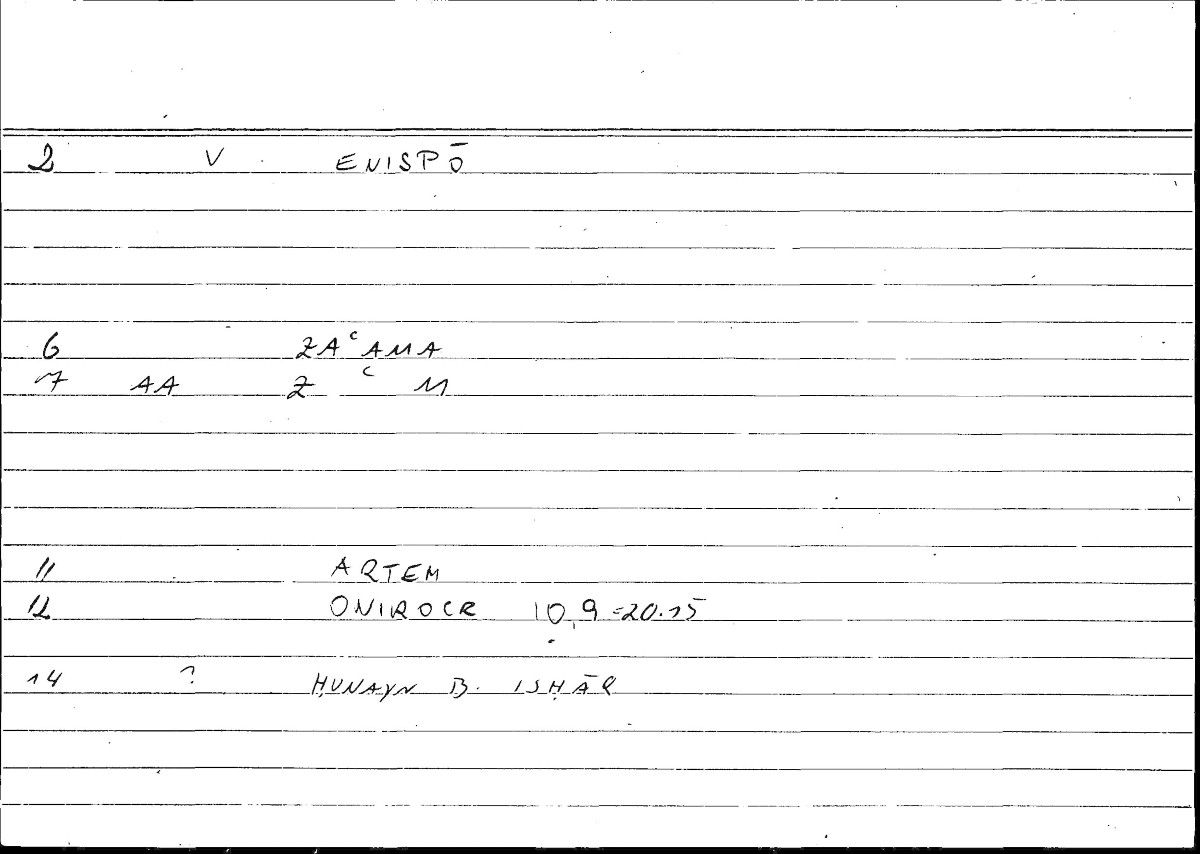 2 V ENISPŌ
6 ZAʿAMA
7 AA Z ʿ M
11 ARTEM
12 ONIROCR 10,9=20.15
14 ? ḤUNAYN B. ISḤĀQ